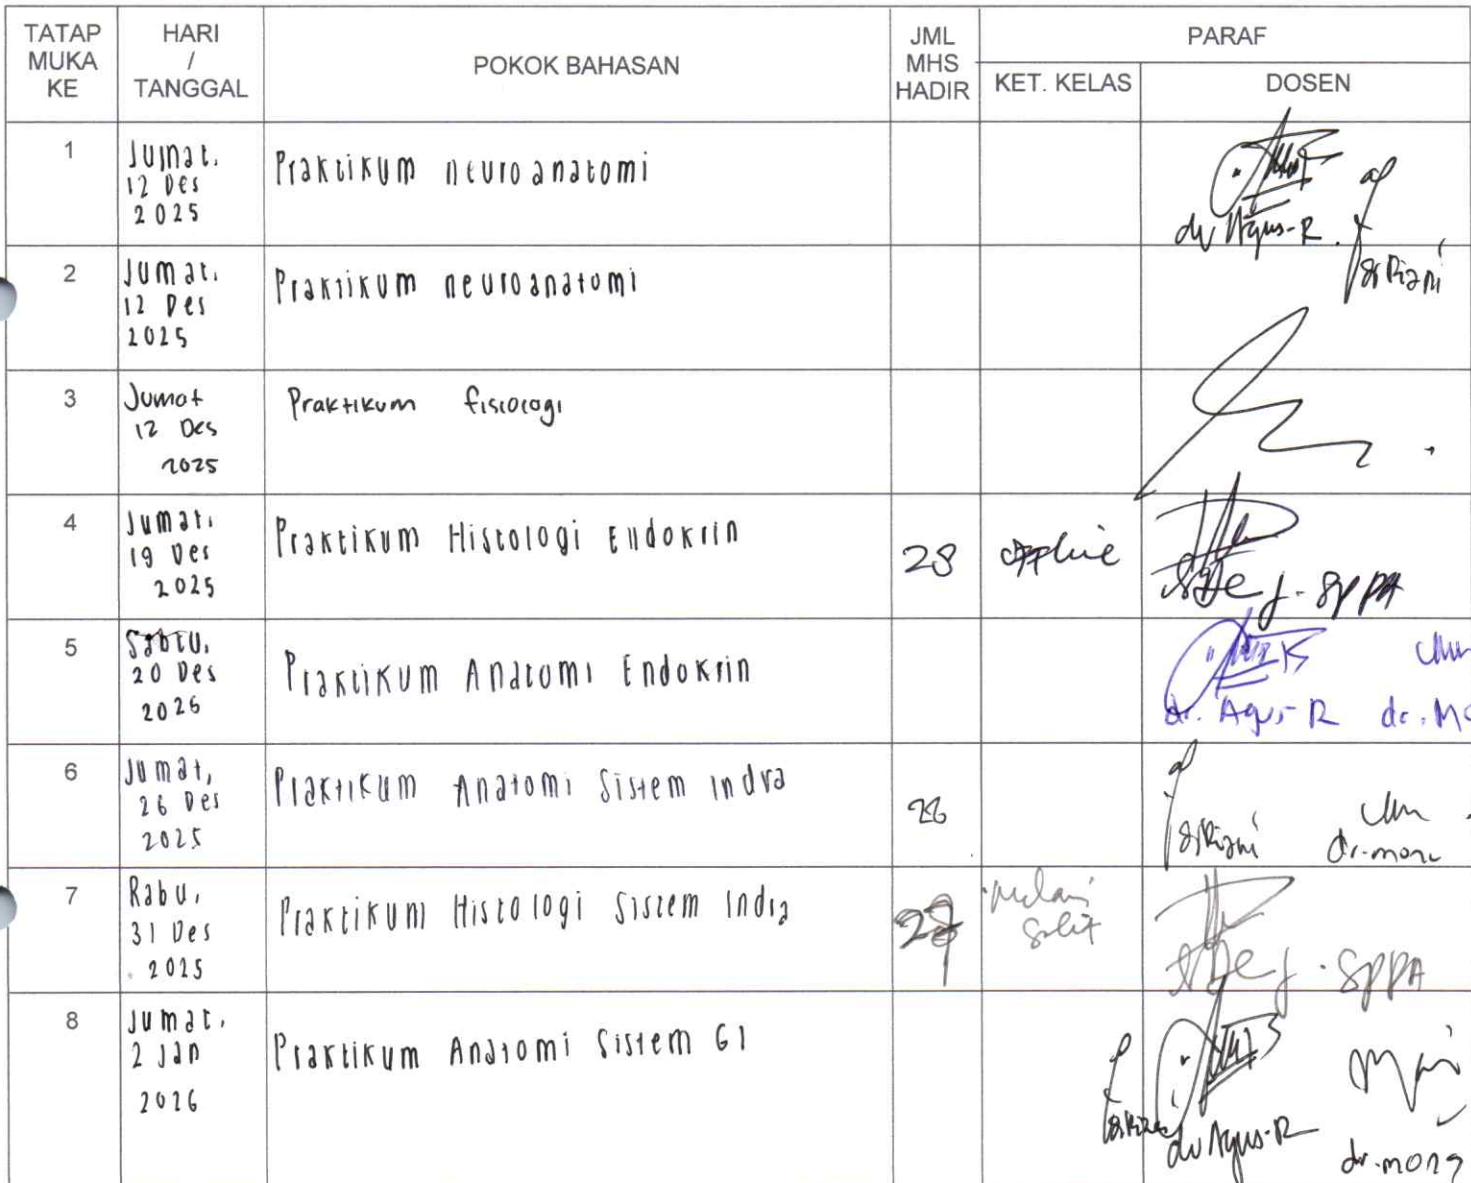 TATAP MUKA KE
HARI / TANGGAL
POKOK BAHASAN
JML MHS HADIR
PARAF
KET. KELAS
DOSEN
1
Jumat,
12 Des
2025
Praktikum neuroanatomi
dr Agus-R.
2
Jumat,
12 Des
2025
Praktikum neuroanatomi
3
Jumat
12 Des
2025
Praktikum fisiologi
4
Jumat,
19 Des
2025
Praktikum Histologi Endokrin
28
offline
SpPA
5
Sabtu,
20 Des
2025
Praktikum Anatomi Endokrin
dr. Agus-R
6
Jumat,
26 Des
2025
Praktikum Anatomi Sistem Indra
7
Rabu,
31 Des
2025
Praktikum Histologi Sistem Indra
SpPA
8
Jumat,
2 Jan
2026
Praktikum Anatomi Sistem GI
dr Agus-R